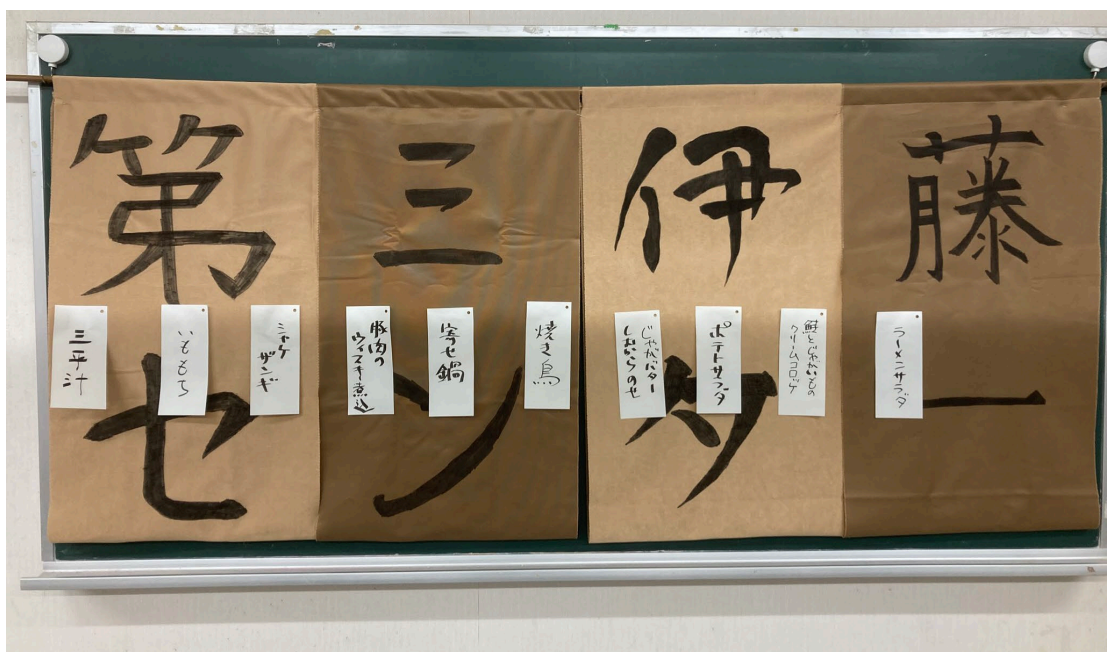 第三伊藤
センター
三平汁
いももち
シャケ
ザンギ
豚肉の
ウィスキー煮込
寄せ鍋
焼き鳥
じゃがバター
しおからのせ
ポテトサラダ
鮭とじゃがいもの
クリームコロッケ
ラーメンサラダ